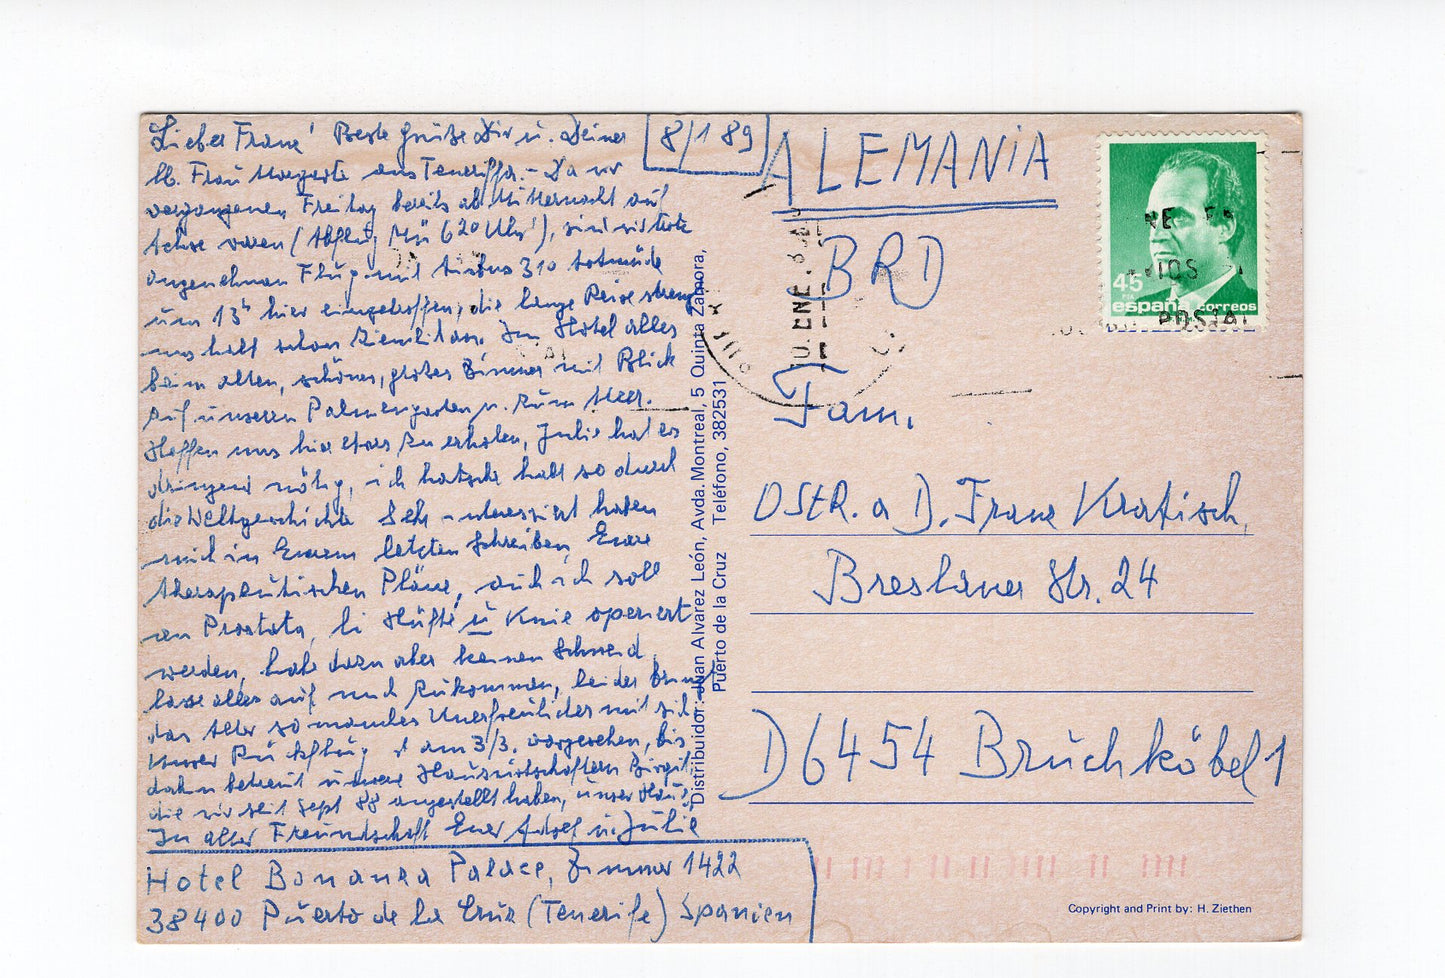 8/1 89
Lieber Franz! Beste Grüße Dir u. Deiner
lb. Frau Margarete aus Teneriffa. - Da wir
vergangenen Freitag bereits ab Mitternacht auf
Achse waren (Abflug Mü 6 20 Uhr!), sind wir trotz
angenehmen Flug mit Airbus 310 totmüde
um 13h hier eingetroffen, die lange Reise streng
uns halt schon ziemlich an. Im Hotel alles
beim alten, schönes, großes Zimmer mit Blick
auf unseren Palmengarten u. zum Meer.
Hoffen uns hier etwas zu erholen, Julie hat es
dringend nötig, ich hatsche halt so durch
die Weltgeschichte Sehr interessiert haben
mich in Eurem letzten Schreiben Eure
therapeutischen Pläne, auch ich soll
an Prostata, li Hüfte u Knie operiert
werden, hab dazu aber keinen Schneid
lasse alles auf mich zukommen, leider bringt
das Alter so manches Unerfreuliches mit sich
Unser Rückflug ist am 3/3. vorgesehen, bis
dahin betreut unsere Hauswirtschafterin Birgit,
die wir seit Sept 88 angestellt haben, unser Haus.
In alter Freundschaft Euer Adolf u. Julie
Hotel Bonanza Palace, Zimmer 1422
38400 Puerto de la Cruz (Tenerife) Spanien
Distribuidor: Juan Alvarez León, Avda. Montreal, 5 Quinta Zamora,
Puerto de la Cruz Teléfono, 382531
ALEMANIA
BRD
10 ENE.
45
PTA
españa correos
POSTAL
Fam.
OStR. a D. Franz Kratisch,
Breslauer Str. 24
D6454 Bruchköbel 1
Copyright and Print by: H. Ziethen